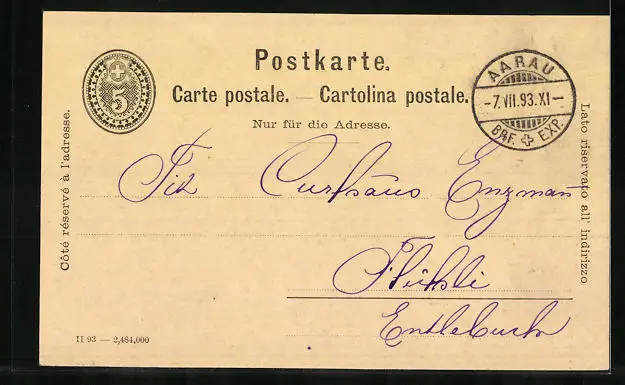 Postkarte.
Carte postale. — Cartolina postale.
Nur für die Adresse.
5
AARAU
-7.VII.93.XI-
BRF. EXP.
Côté réservé à l'adresse.
Lato riservato all' indirizzo
Tit Curhaus Enzman
Flühli
Entlebuch
II 93 — 2,484,000